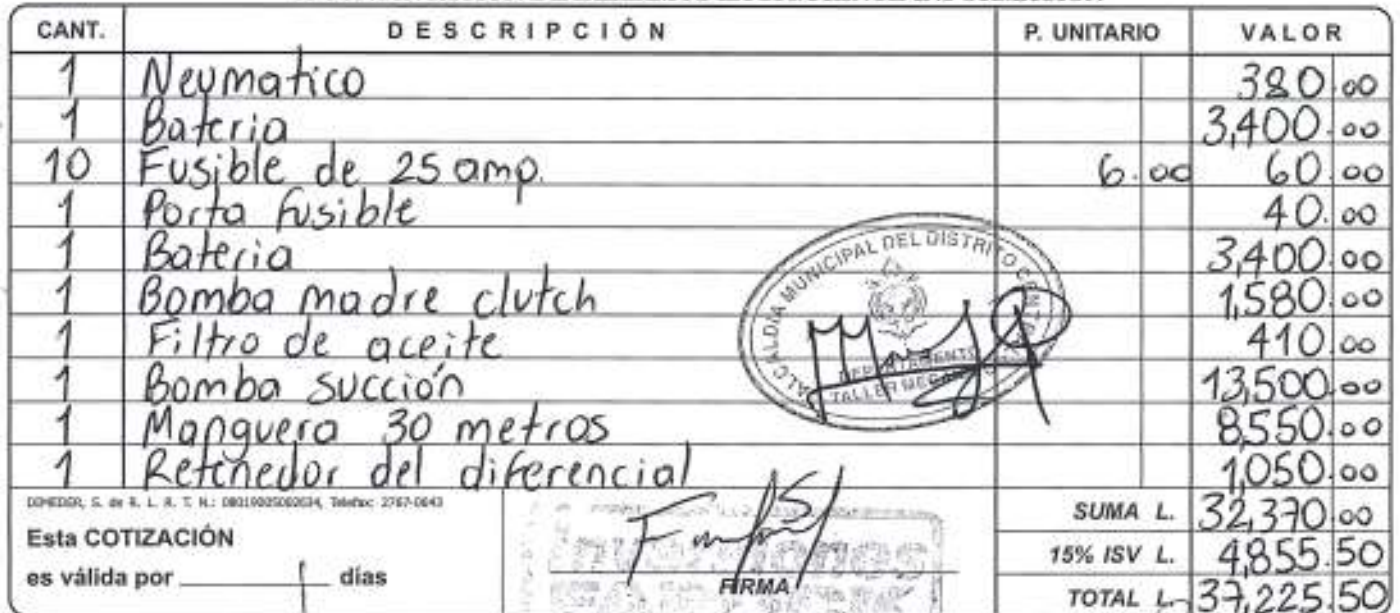 CANT. DESCRIPCIÓN P. UNITARIO VALOR
1 Neumatico 380.00
1 Bateria 3,400.00
10 Fusible de 25 amp. 6.00 60.00
1 Porta fusible 40.00
1 Bateria 3,400.00
1 Bomba madre clutch 1,580.00
1 Filtro de aceite 410.00
1 Bomba succión 13,500.00
1 Manguera 30 metros 8,550.00
1 Retenedor del diferencial 1,050.00
ALCALDIA MUNICIPAL DEL DISTRITO CENTRAL
DEPARTAMENTO
TALLER
S. de R. L. R. T. N.: Telefax: 2767-0643
SUMA L. 32,370.00
Esta COTIZACIÓN
15% ISV L. 4,855.50
es válida por días
FIRMA
TOTAL L. 37,225.50